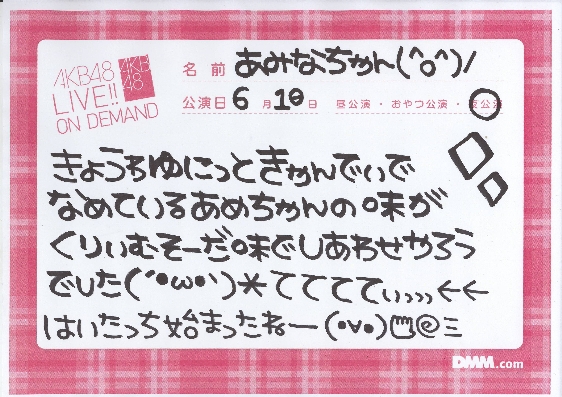 AKB48
LIVE!!
ON DEMAND
AKB
48
名前 あみなちゃん(^o^)/
公演日 6月10日 昼公演・おやつ公演・夜公演
きょうちゆにっときゃんでぃで
なめているあめちゃんの味が
くりぃむそーだ味でしあわせやろう
でした(´•ω•`)＊ててててぃっっっ←←
はいたっち始まったねー(•v•)
DMM.com